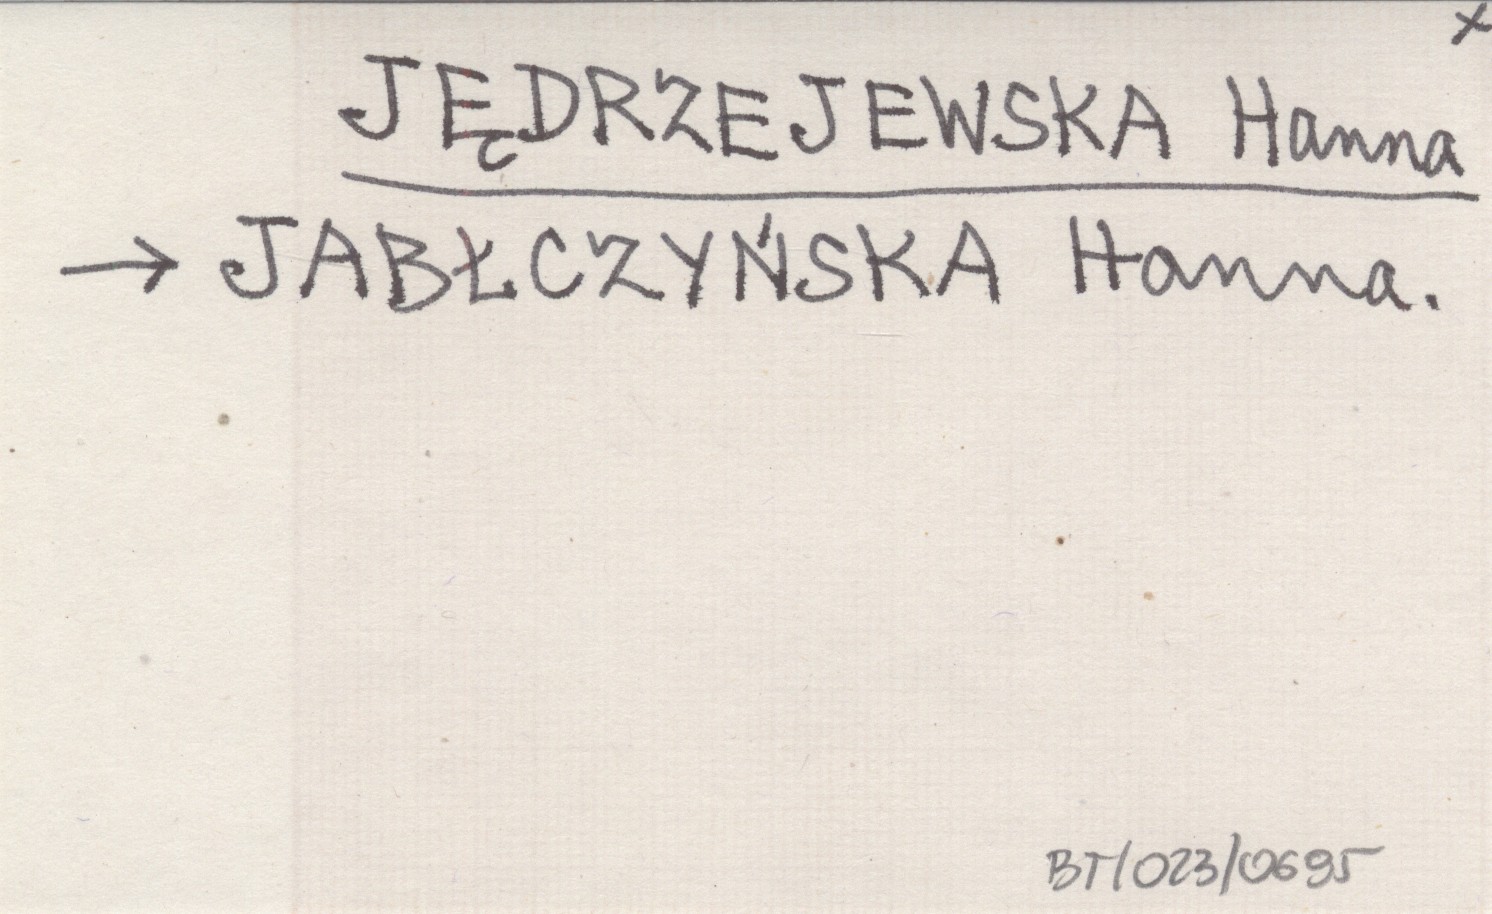 x
JĘDRZEJEWSKA Hanna
→ JABŁCZYŃSKA Hanna.
BT/023/0695